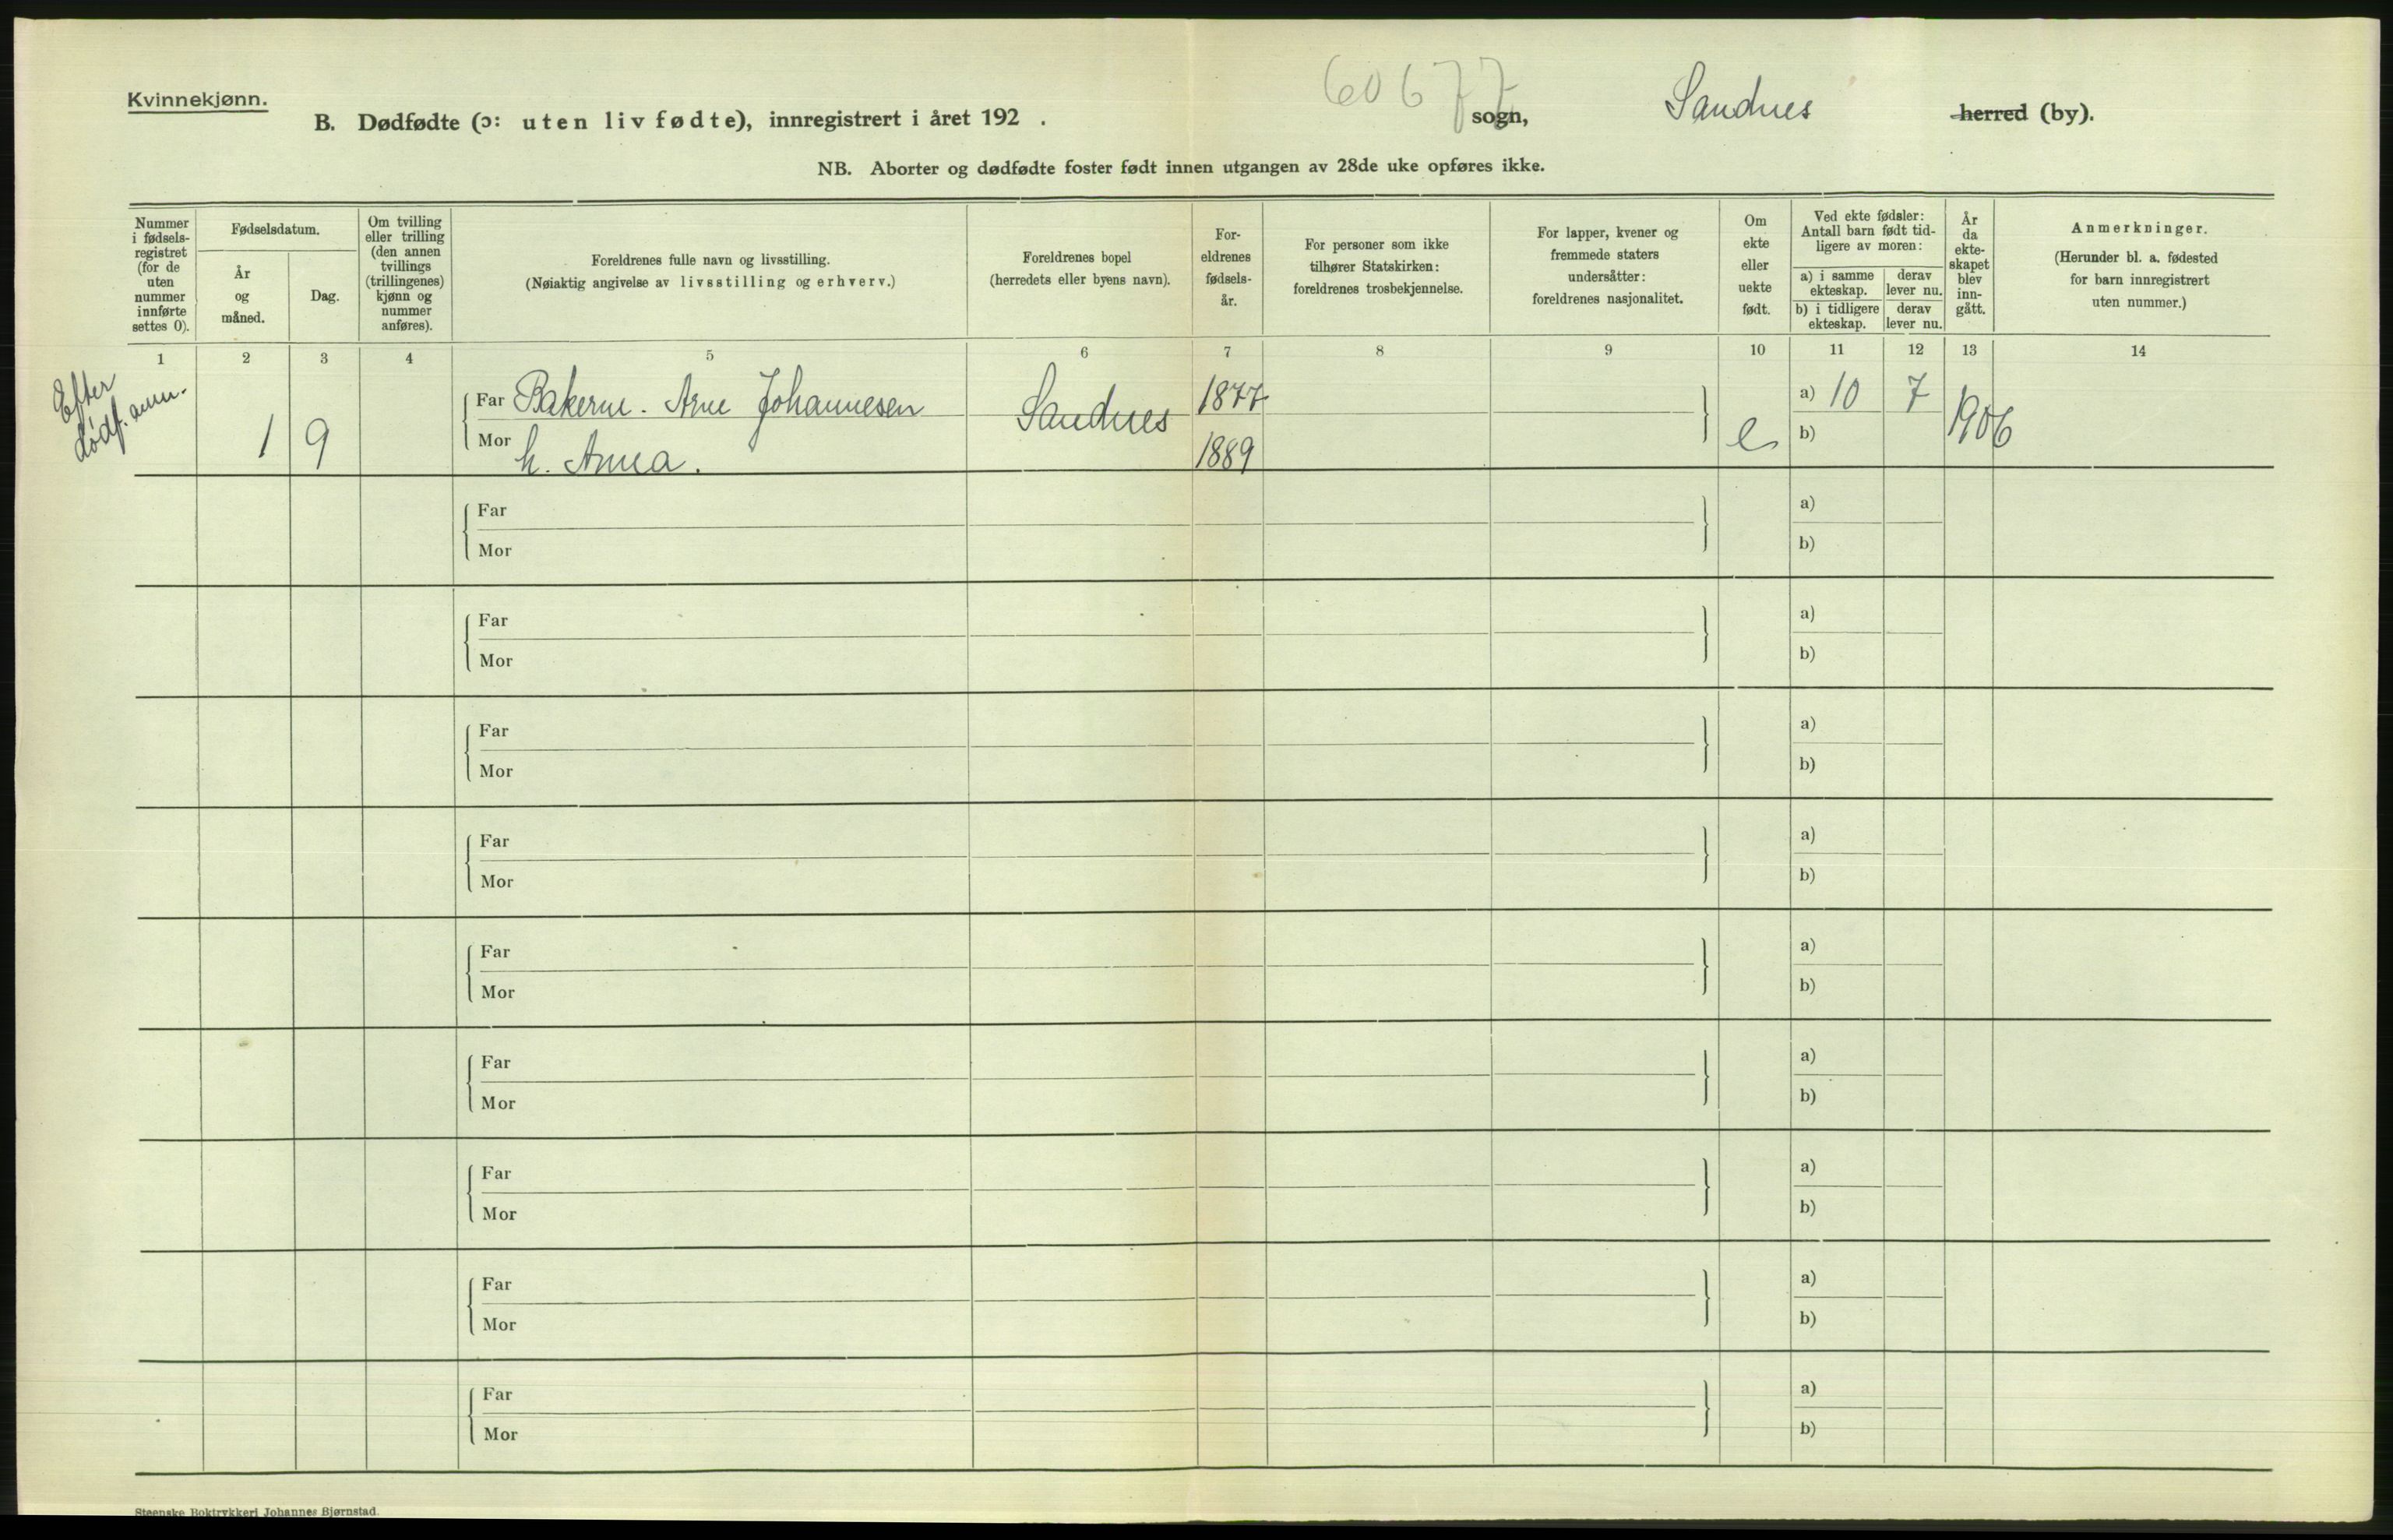 Kvinnekjønn.
60677
B. Dødfødte (ɔ: uten liv fødte), innregistrert i året 192 . sogn, Sandnes herred (by).
NB. Aborter og dødfødte foster født innen utgangen av 28de uke opføres ikke.
Nummer i fødsels- registret (for de uten nummer innførte settes 0).
Fødselsdatum.
År og måned.
Dag.
Om tvilling eller trilling (den annen tvillings (trillingenes) kjønn og nummer anføres).
Foreldrenes fulle navn og livsstilling.
(Nøiaktig angivelse av livsstilling og erhverv.)
Foreldrenes bopel
(herredets eller byens navn).
For- eldrenes fødsels- år.
For personer som ikke tilhører Statskirken: foreldrenes trosbekjennelse.
For lapper, kvener og fremmede staters undersåtter: foreldrenes nasjonalitet.
Om ekte eller uekte født.
Ved ekte fødsler: Antall barn født tid- ligere av moren:
a) i samme ekteskap.
derav lever nu.
b) i tidligere ekteskap.
derav lever nu.
År da ekte- skapet blev inn- gått.
Anmerkninger.
(Herunder bl. a. fødested for barn innregistrert uten nummer.)
1 2 3 4 5 6 7 8 9 10 11 12 13 14
Efter
dødf. anm.
1 9
Far Bakerm. Arne Johannesen Sandnes 1877 a) 10 7 1906
Mor h. Anna. 1889 e b)
Far a)
Mor b)
Far a)
Mor b)
Far a)
Mor b)
Far a)
Mor b)
Far a)
Mor b)
Far a)
Mor b)
Far a)
Mor b)
Far a)
Mor b)
Far a)
Mor b)
Steenske Boktrykkeri Johannes Bjørnstad.